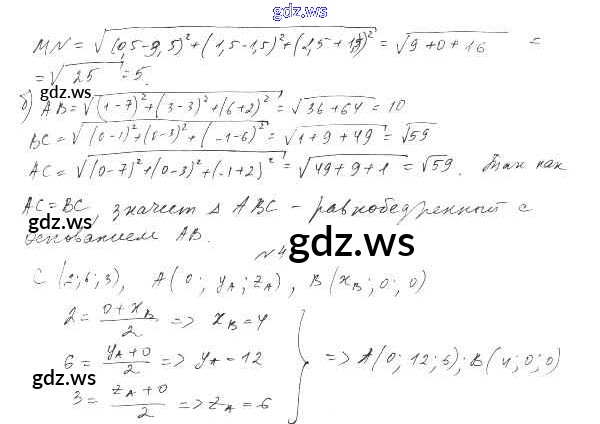 gdz.ws
MN = √((0,5-9,5)²+(1,5-1,5)²+(2,5+1,5)²) = √(9+0+16) =
= √25 = 5.
gdz.ws
б) AB = √((1-7)²+(3-3)²+(6+2)²) = √(36+64) = 10
BC = √((0-1)²+(0-3)²+(-1-6)²) = √(1+9+49) = √59
AC = √((0-7)²+(0-3)²+(-1+2)²) = √(49+9+1) = √59. Так как
AC = BC, значит Δ ABC - равнобедренный с
gdz.ws
основанием AB.
gdz.ws
№4
C(2;6;3), A(0; yA; zA), B(xB; 0; 0)
2 = (0+xB)/2 => xB = 4
6 = (yA+0)/2 => yA = 12
=> A(0; 12; 6); B(4; 0; 0)
gdz.ws
3 = (zA+0)/2 => zA = 6
gdz.ws